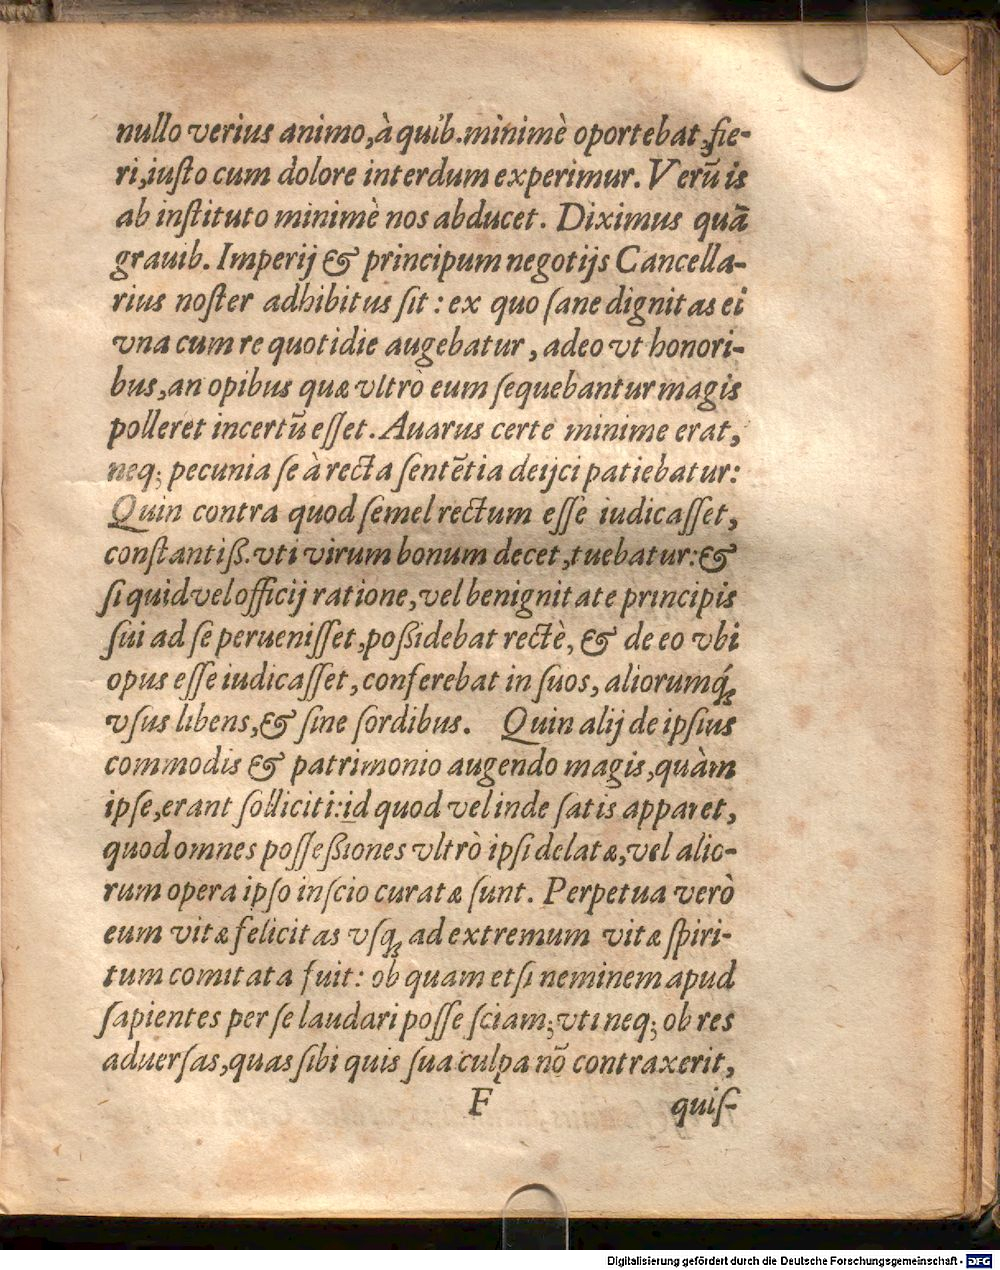 nullo verius animo,à quib.minimè oportebat,fie-
ri,iuſto cum dolore interdum experimur. Verũ is
ab inſtituto minimè nos abducet. Diximus quã
grauib. Imperij & principum negotijs Cancella-
rius noſter adhibitus ſit : ex quo ſane dignitas ei
vna cum re quotidie augebatur, adeo vt honori-
bus,an opibus quæ vltrò eum ſequebantur magis
polleret incertũ eſſet. Auarus certe minime erat,
neq; pecunia ſe à recta ſentẽtia deijci patiebatur:
Quin contra quod ſemel rectum eſſe iudicaſſet,
conſtantiß.vti virum bonum decet,tuebatur:&
ſi quid vel officij ratione,vel benignitate principis
ſui ad ſe perueniſſet,poßidebat rectè, & de eo vbi
opus eſſe iudicaſſet,conferebat in ſuos, aliorumq́;
vſus libens,& ſine ſordibus. Quin alij de ipſius
commodis & patrimonio augendo magis,quàm
ipſe,erant ſolliciti:id quod vel inde ſatis apparet,
quod omnes poſſeßiones vltrò ipſi delatæ,vel alio-
rum opera ipſo inſcio curatæ ſunt. Perpetua verò
eum vitæ felicitas vſq; ad extremum vitæ ſpiri-
tum comitata fuit: ob quam etſi neminem apud
ſapientes per ſe laudari poſſe ſciam;vti neq; ob res
aduerſas,quas ſibi quis ſua culpa nõ contraxerit,
F quiſ-
Digitalisierung gefördert durch die Deutsche Forschungsgemeinschaft - DFG